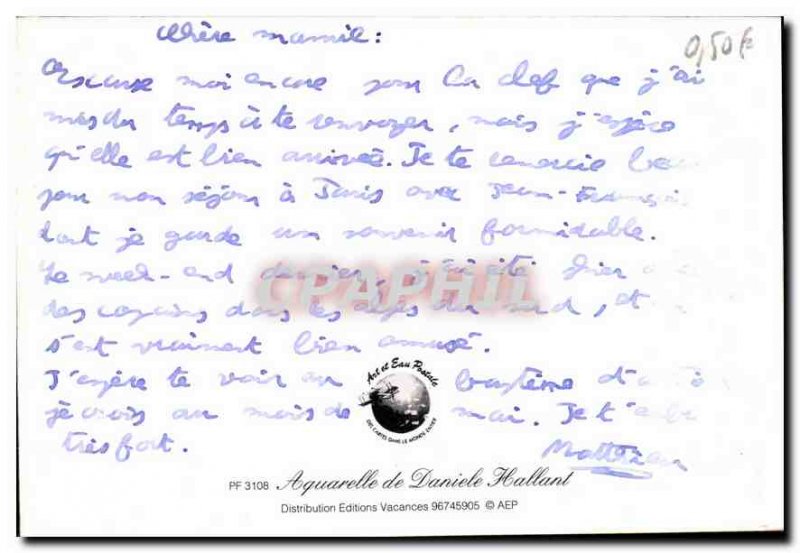 Chère mamie :
0,50 €
Excuse moi encore pour la clef que j'ai
mis du temps à te renvoyer, mais j'espère
qu'elle est bien arrivée. Je te remercie
pour mon séjour à Paris avec Jean-François
dont je garde un souvenir formidable.
Le week-end dernier, j'ai été
des copains dans les alpes du sud, et
s'est vraiment bien amusé.
J'espère te voir au baptème
je crois au mois de mai. Je t'
très fort.
Matthieu
CPAPHIL
Art et Eau Postale
DES CARTES DANS LE MONDE ENTIER
PF 3108 Aquarelle de Daniele Hallant
Distribution Editions Vacances 96745905 © AEP